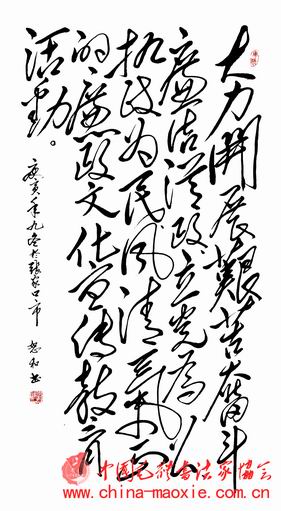 大力開展艱苦奮斗
廉洁從政立党為公
执政为民風清氣正
的廉政文化宣傳教育
活動。
庚寅年九冬於張家口市
中国毛体书法家协会
www.china-maoxie.com